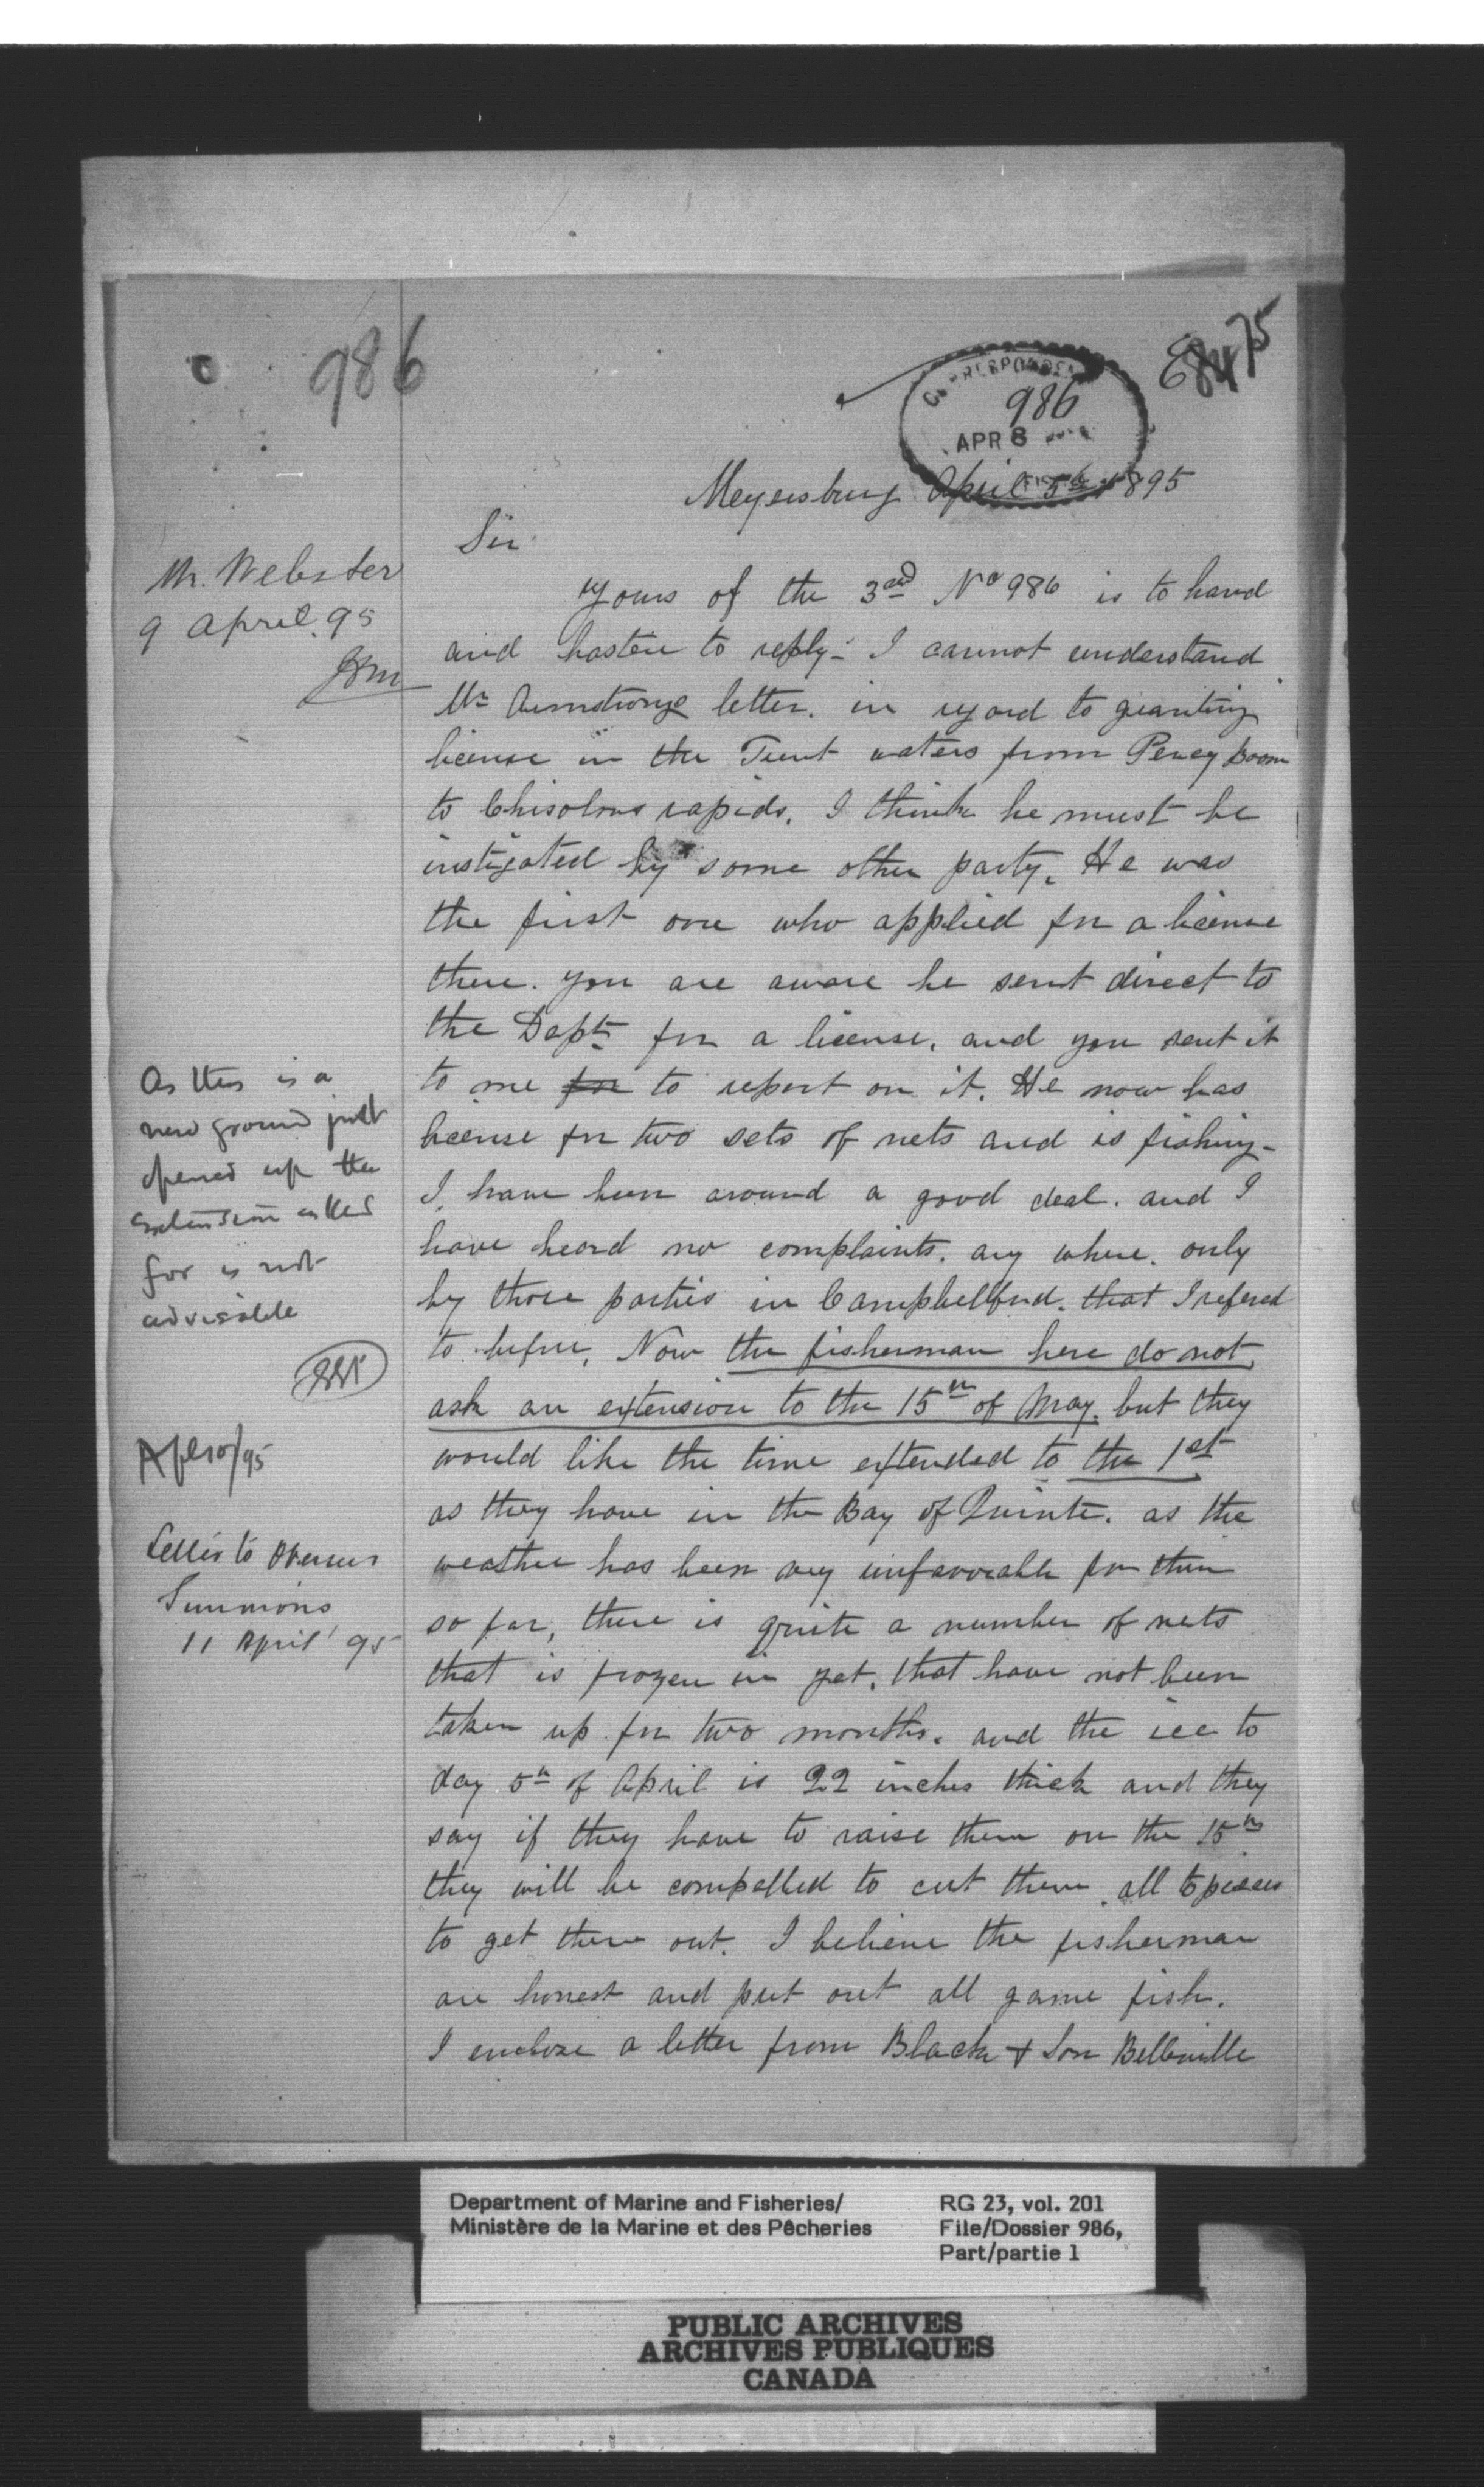 986
E8475
CORRESPONDEN
986
APR 8
Meyersburg April 5th 1895
Mr. Webster
9 April. 95
Sir
Yours of the 3rd No 986 is to hand
and hasten to reply - I cannot understand
Mr Armstrongs letter. in regard to granting
license in the Trent waters from Percy Boom
to Chisolms rapids. I think he must be
instigated by some other party. He was
the first one who applied for a license
there. you are aware he sent direct to
the Dept for a license. and you sent it
to me for to report on it. He now has
license for two sets of nets and is fishing -
I have been around a good deal. and I
have heard no complaints. any where. only
by those parties in Campbellford. that I refered
to before. Now the fisherman here do not
ask an extension to the 15th of May. but they
would like the time extended to the 1st
as they have in the Bay of Quinte. as the
weather has been very unfavorable for them
so far, there is quite a number of nets
that is frozen in yet. that have not been
taken up for two months. and the ice to
day 5th of April is 22 inches thick and they
say if they have to raise them on the 15th
they will be compelled to cut them all to peices
to get them out. I believe the fisherman
are honest and put out all game fish.
I enclose a letter from Black & Son Belleville
As this is a
new ground just
opened up the
extension asked
for is not
advisable
Apl 10/95
Letter to Overseer
Simmons
11 April '95
Department of Marine and Fisheries/
Ministère de la Marine et des Pêcheries
RG 23, vol. 201
File/Dossier 986,
Part/partie 1
PUBLIC ARCHIVES
ARCHIVES PUBLIQUES
CANADA